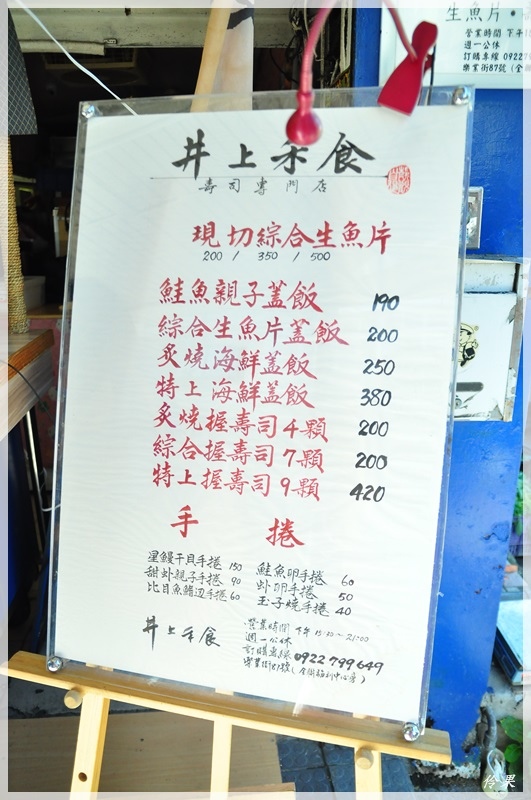 生魚片・
營業時間 下午1
週一公休
訂購專線 0922
樂業街87號(全
井上禾食
壽司專門店
現切綜合生魚片
200 / 350 / 500
鮭魚親子蓋飯 190
綜合生魚片蓋飯 200
炙燒海鮮蓋飯 250
特上海鮮蓋飯 380
炙燒握壽司4顆 200
綜合握壽司7顆 200
特上握壽司9顆 420
手捲
星鰻干貝手捲 150 鮭魚卵手捲 60
甜蝦親子手捲 90 蝦卵手捲 50
比目魚鰭边手捲 60 玉子燒手捲 40
井上禾食
營業時間 下午 15:30~21:00
週一公休
訂購專線 0922799649
樂業街87號(全聯福利中心旁)
伶果